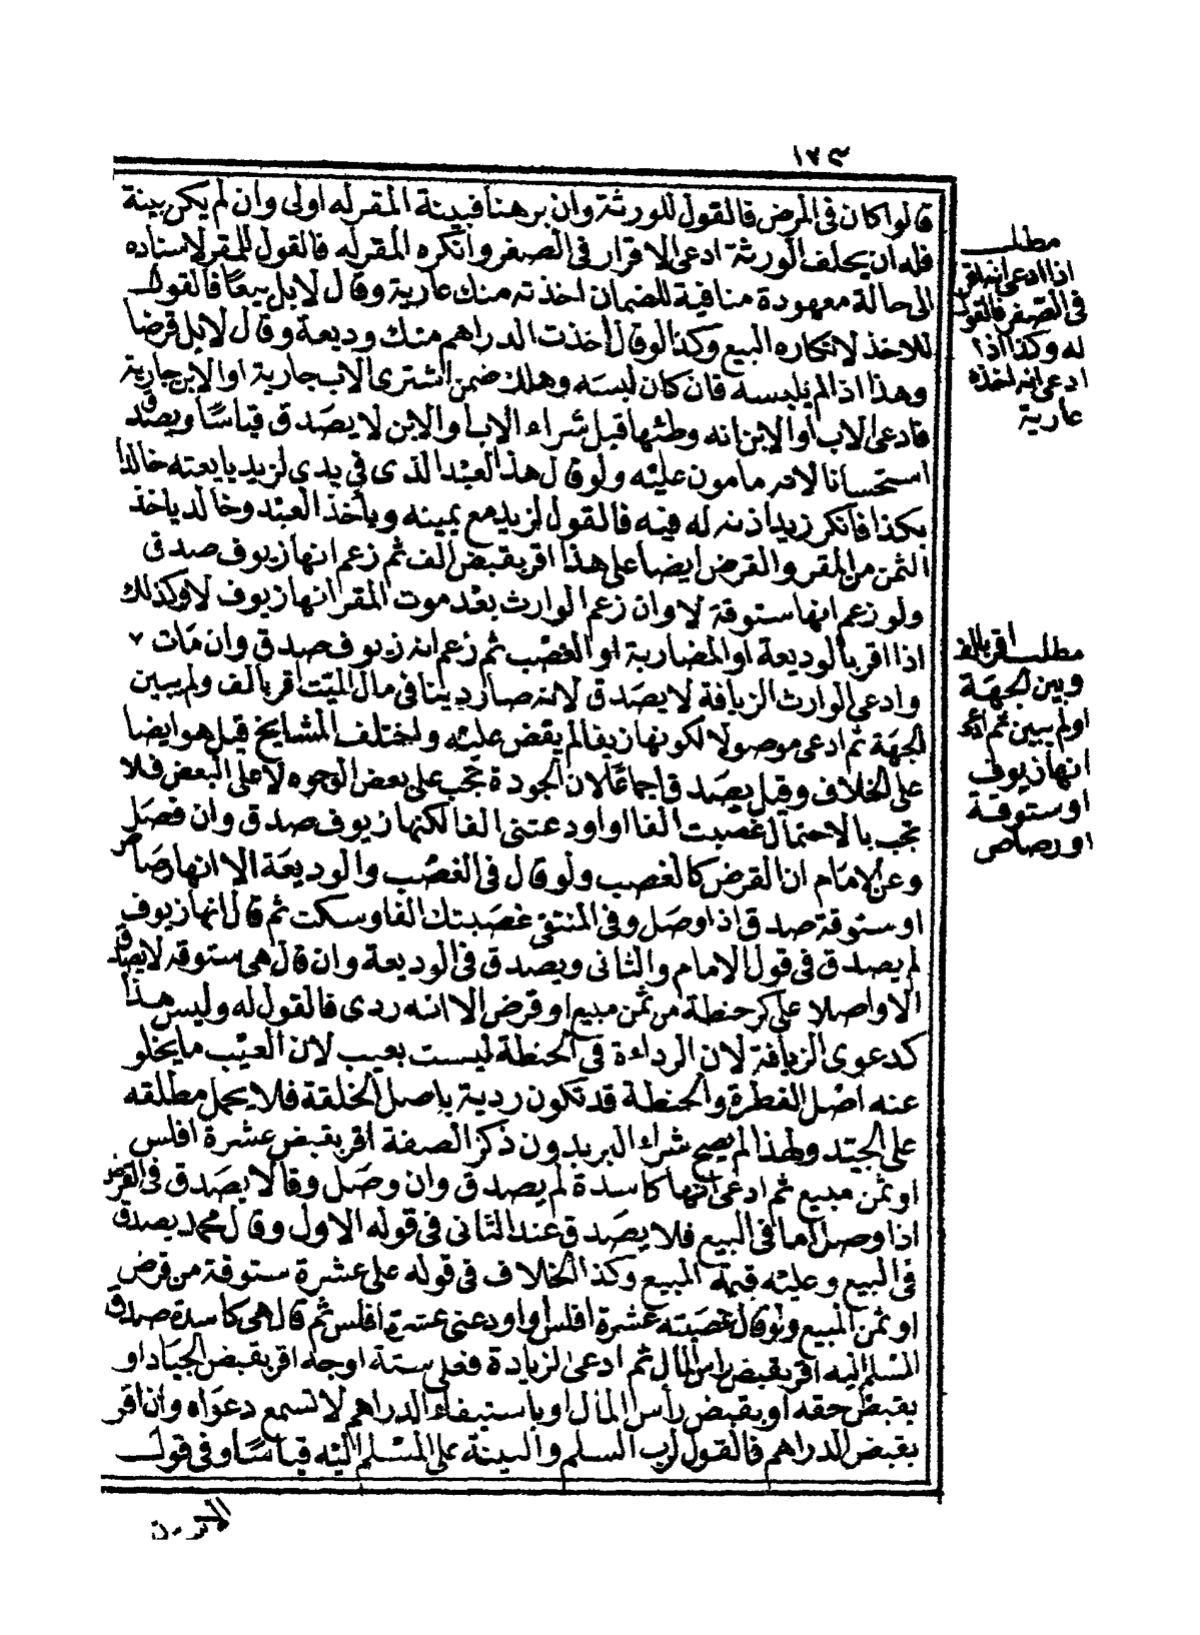 ١٢٣
قالوا كان في المرض فالقول للورثة وان برهنا فبينة المقر له اولى وان لم يكن بينة
فله ان يحلف الورثة ادعى الاقرار في الصغر وانكره المقر له فالقول للمقر لاسناده
الى حالة معهودة منافية للضمان اخذته منك عارية وقال لا بل بيعا فالقول
للاخذ لانكاره البيع وكذا لو قال اخذت الدراهم منك وديعة وقال لا بل قرضا
وهذا اذا لم يلبسه فان كان لبسه وهلك ضمن اشترى الاب جارية او الابن جارية
فادعى الاب او الابن انه وطئها قبل شراء الاب او الابن لا يصدق قياسا ويصدق
استحسانا لانه مامون عليه ولو قال هذا العبد الذى في يدى لزيد بايعته خالدا
بكذا فانكر زيد اذنه له فيه فالقول لزيد مع يمينه وياخذ العبد وخالد ياخذ
الثمن من المقر والقرض ايضا على هذا اقر بقبض الف ثم زعم انها زيوف صدق
ولو زعم انها ستوقة لا وان زعم الوارث بعد موت المقر انها زيوف لا وكذلك
اذا اقر بالوديعة او المضاربة او الغصب ثم زعم انه زيوف صدق وان مات
وادعى الوارث الزيافة لا يصدق لانه صار دينا في مال الميت اقر بالف ولم يبين
الجهة ثم ادعى موصولا لكونها زيفا لم يقض عليه واختلف المشايخ قيل هو ايضا
على الخلاف وقيل يصدق اجماعا لان الجودة تجب على بعض الوجوه لا على البعض فلا
تجب بالاحتمال غصبت الفا او اودعتنى الفا لكنها زيوف صدق وان فصل
وعن الامام ان القرض كالغصب ولو قال في الغصب والوديعة الا انها رصاص
او ستوقة صدق اذا وصل وفي المنتقى غصبتك الفا وسكت ثم قال انها زيوف
لم يصدق في قول الامام والثانى ويصدق في الوديعة وان قال هى ستوقة لا يصدق
الا واصلا على كر حنطة من ثمن مبيع او قرض الا انه ردى فالقول له وليس هذا
كدعوى الزيافة لان الرداءة في الحنطة ليست بعيب لان العيب ما يخلو
عنه اصل الفطرة والحنطة قد تكون ردية باصل الخلقة فلا يحمل مطلقه
على الجيد ولهذا لم يصح شراء البر بدون ذكر الصفة اقر بقبض عشرة افلس
او ثمن مبيع ثم ادعى انها كاسدة لم يصدق وان وصل وقالا يصدق في القرض
اذا وصل اما في البيع فلا يصدق عند الثانى في قوله الاول وقال محمد يصدق
في البيع وعليه قيمة المبيع وكذا الخلاف في قوله على عشرة ستوقة من قرض
او ثمن المبيع ولو قال غصبته عشرة افلس او اودعنى عشرة افلس ثم قال هى كاسدة صدق
المسلم اليه اقر بقبض راس المال ثم ادعى الزيادة فعلى ستة اوجه اقر بقبض الجياد او
بقبض حقه او بقبض رأس المال او باستيفاء الدراهم لا تسمع دعواه وان اقر
بقبض الدراهم فالقول لرب السلم والبينة على المسلم اليه قياسا وفي قول
مطلب
اذا ادعى انه اقر
في الصغر فالقول
له وكذا اذا
ادعى انه اخذه
عارية
مطلب اقر بالف
وبين الجهة
او لم يبين ثم ادعى
انها زيوف
او ستوقة
او رصاص